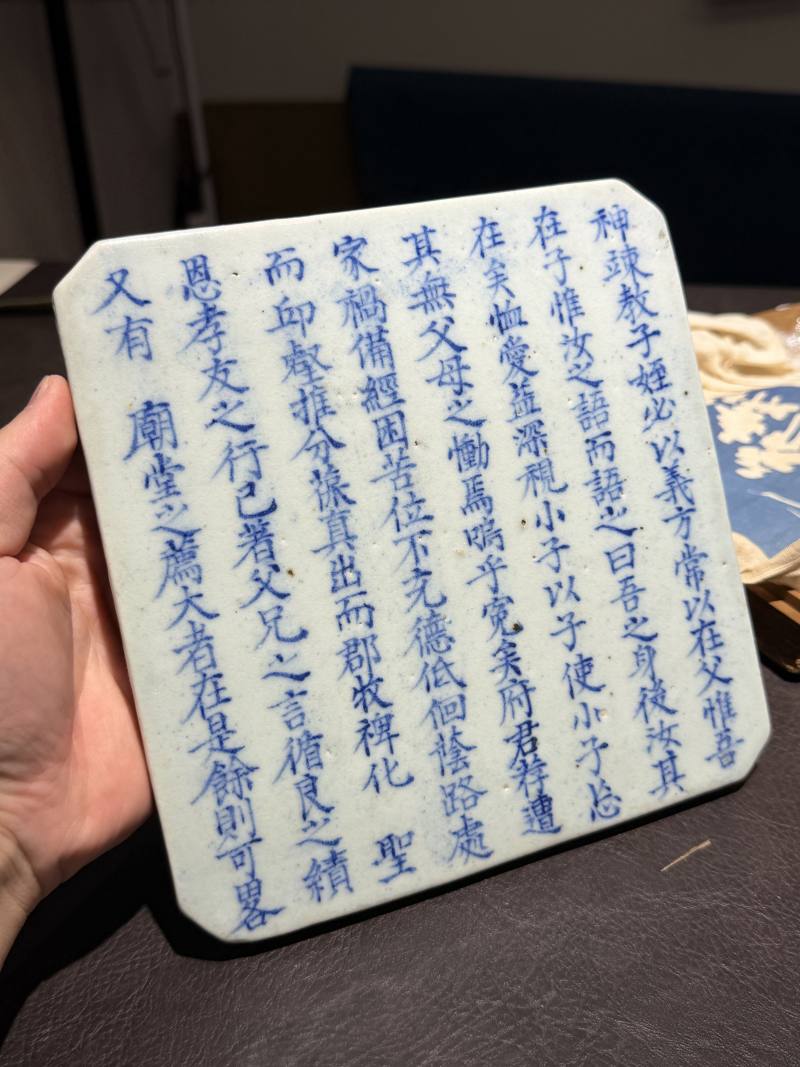 神竦教子姪必以義方常以在父惟吾
在子惟汝之語而語之曰吾之身後汝其
在矣恤愛益深視小子以子使小子忘
其無父母之慟焉嗚乎寃矣府君荐遭
家禍備經困苦位不充德低佪蔭路處
而卭壑推分葆真出而郡牧裨化 聖
恩孝友之行已著父兄之言循良之績
又有 廟堂之薦大者在是餘則可畧